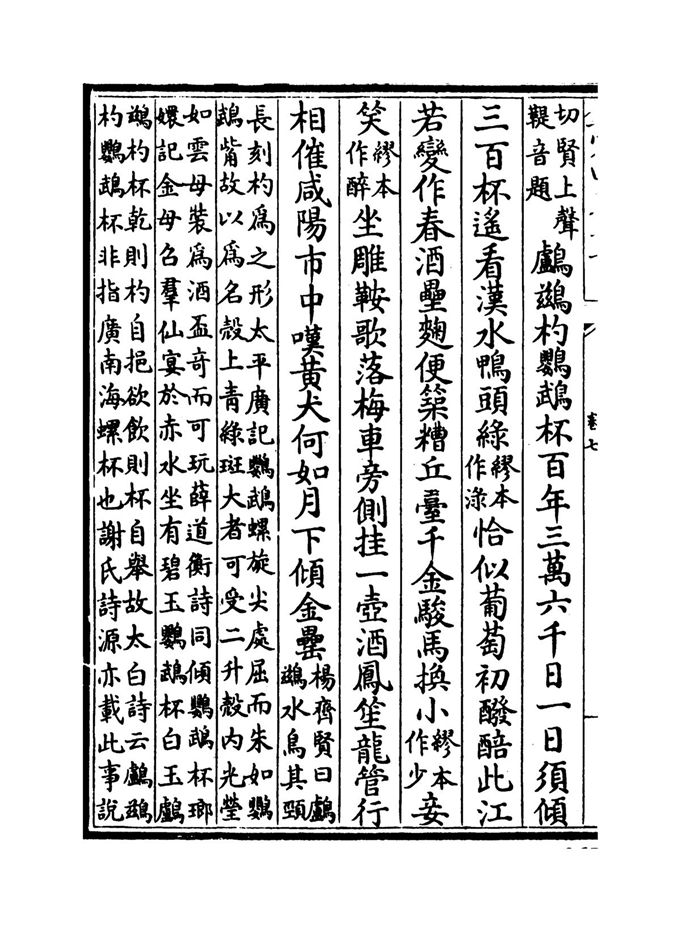 切賢上聲
鞮音題
鸕鷀杓鸚鵡杯百年三萬六千日一日須傾
三百杯遙看漢水鴨頭綠繆本作淥恰似葡萄初醱醅此江
若變作春酒壘麴便築糟丘臺千金駿馬換小繆本作少妾
笑繆本作醉坐雕鞍歌落梅車旁側挂一壺酒鳳笙龍管行
相催咸陽市中嘆黄犬何如月下傾金罍
楊齊賢曰鸕
鷀水鳥其頸
長刻杓爲之形太平廣記鸚鵡螺旋尖處屈而朱如鸚
鵡觜故以爲名殼上青綠斑大者可受二升殼内光瑩
如雲母裝爲酒盃奇而可玩薛道衡詩同傾鸚鵡杯瑯
嬛記金母召羣仙宴於赤水坐有碧玉鸚鵡杯白玉鸕
鷀杓杯乾則杓自挹欲飲則杯自舉故太白詩云鸕鷀
杓鸚鵡杯非指廣南海螺杯也謝氏詩源亦載此事說
卷七